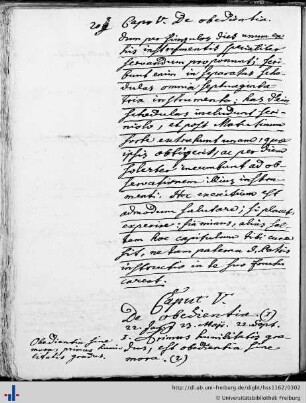 Caput V. De obedientia.
dum per singulos dies unum ex
his instrumentis specialiter
servandum proponunt; scri-
bunt enim in separatas sche-
dulas omnia septuaginta
tria instrumenta; has dein
schedulas includunt scri-
niolo, et post Matutinum
sorte extrahunt unam, qua
ipsis obtigerit, ac per diem
solerter incumbunt ad ob-
servationem hujus instru-
menti. Hoc exercitium est
admodum salutare; si placet,
experire: sin minus, alias sal-
tem hoc capitulum tibi curæ
sit, ne tam paterna S. Patris
instructio in te suo fructu
careat.
Caput V.
De obedientia. (1)
22. Jan. 23. Maji. 22. Sept.
1. Primus humilitatis gra-
dus, est obedientia sine
mora. (2)
Obedientia sine
mora, primus humi-
litatis gradus.
http://dl.ub.uni-freiburg.de/diglit/hs1162/0302
© Universitätsbibliothek Freiburg